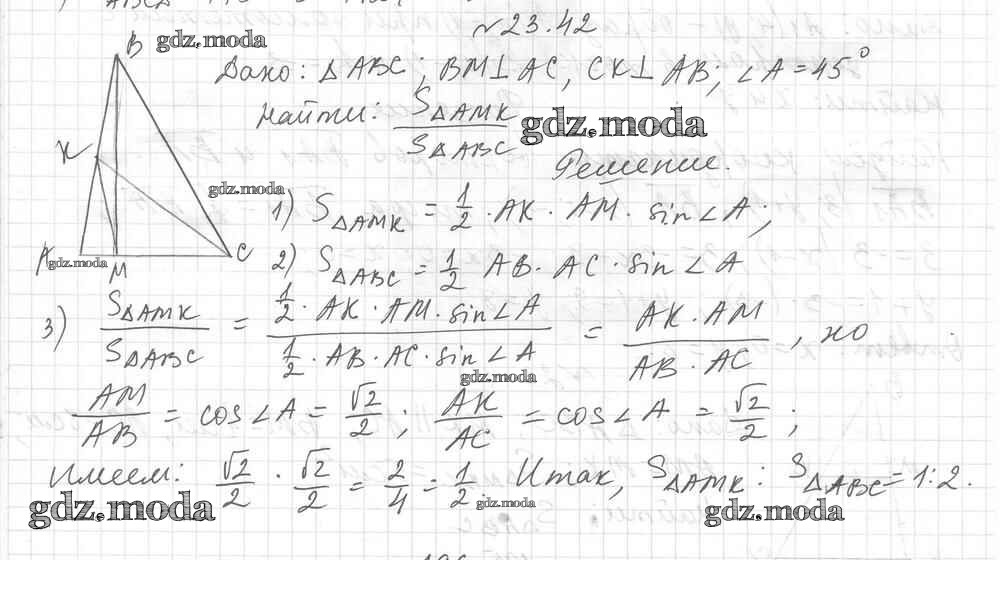 №23.42
B gdz.moda
Дано: △ABC; BM⊥AC, CK⊥AB; ∠A=45°
Найти: S△AMK / S△ABC gdz.moda
K
gdz.moda
Решение.
1) S△AMK = 1/2 · AK · AM · sin∠A;
A gdz.moda M C
2) S△ABC = 1/2 AB · AC · sin∠A
3) S△AMK / S△ABC = (1/2 · AK · AM · sin∠A) / (1/2 · AB · AC · sin∠A) = (AK · AM) / (AB · AC), но
gdz.moda
AM/AB = cos∠A = √2/2; AK/AC = cos∠A = √2/2;
Имеем: √2/2 · √2/2 = 2/4 = 1/2. Итак, S△AMK : S△ABC = 1:2.
gdz.moda gdz.moda gdz.moda